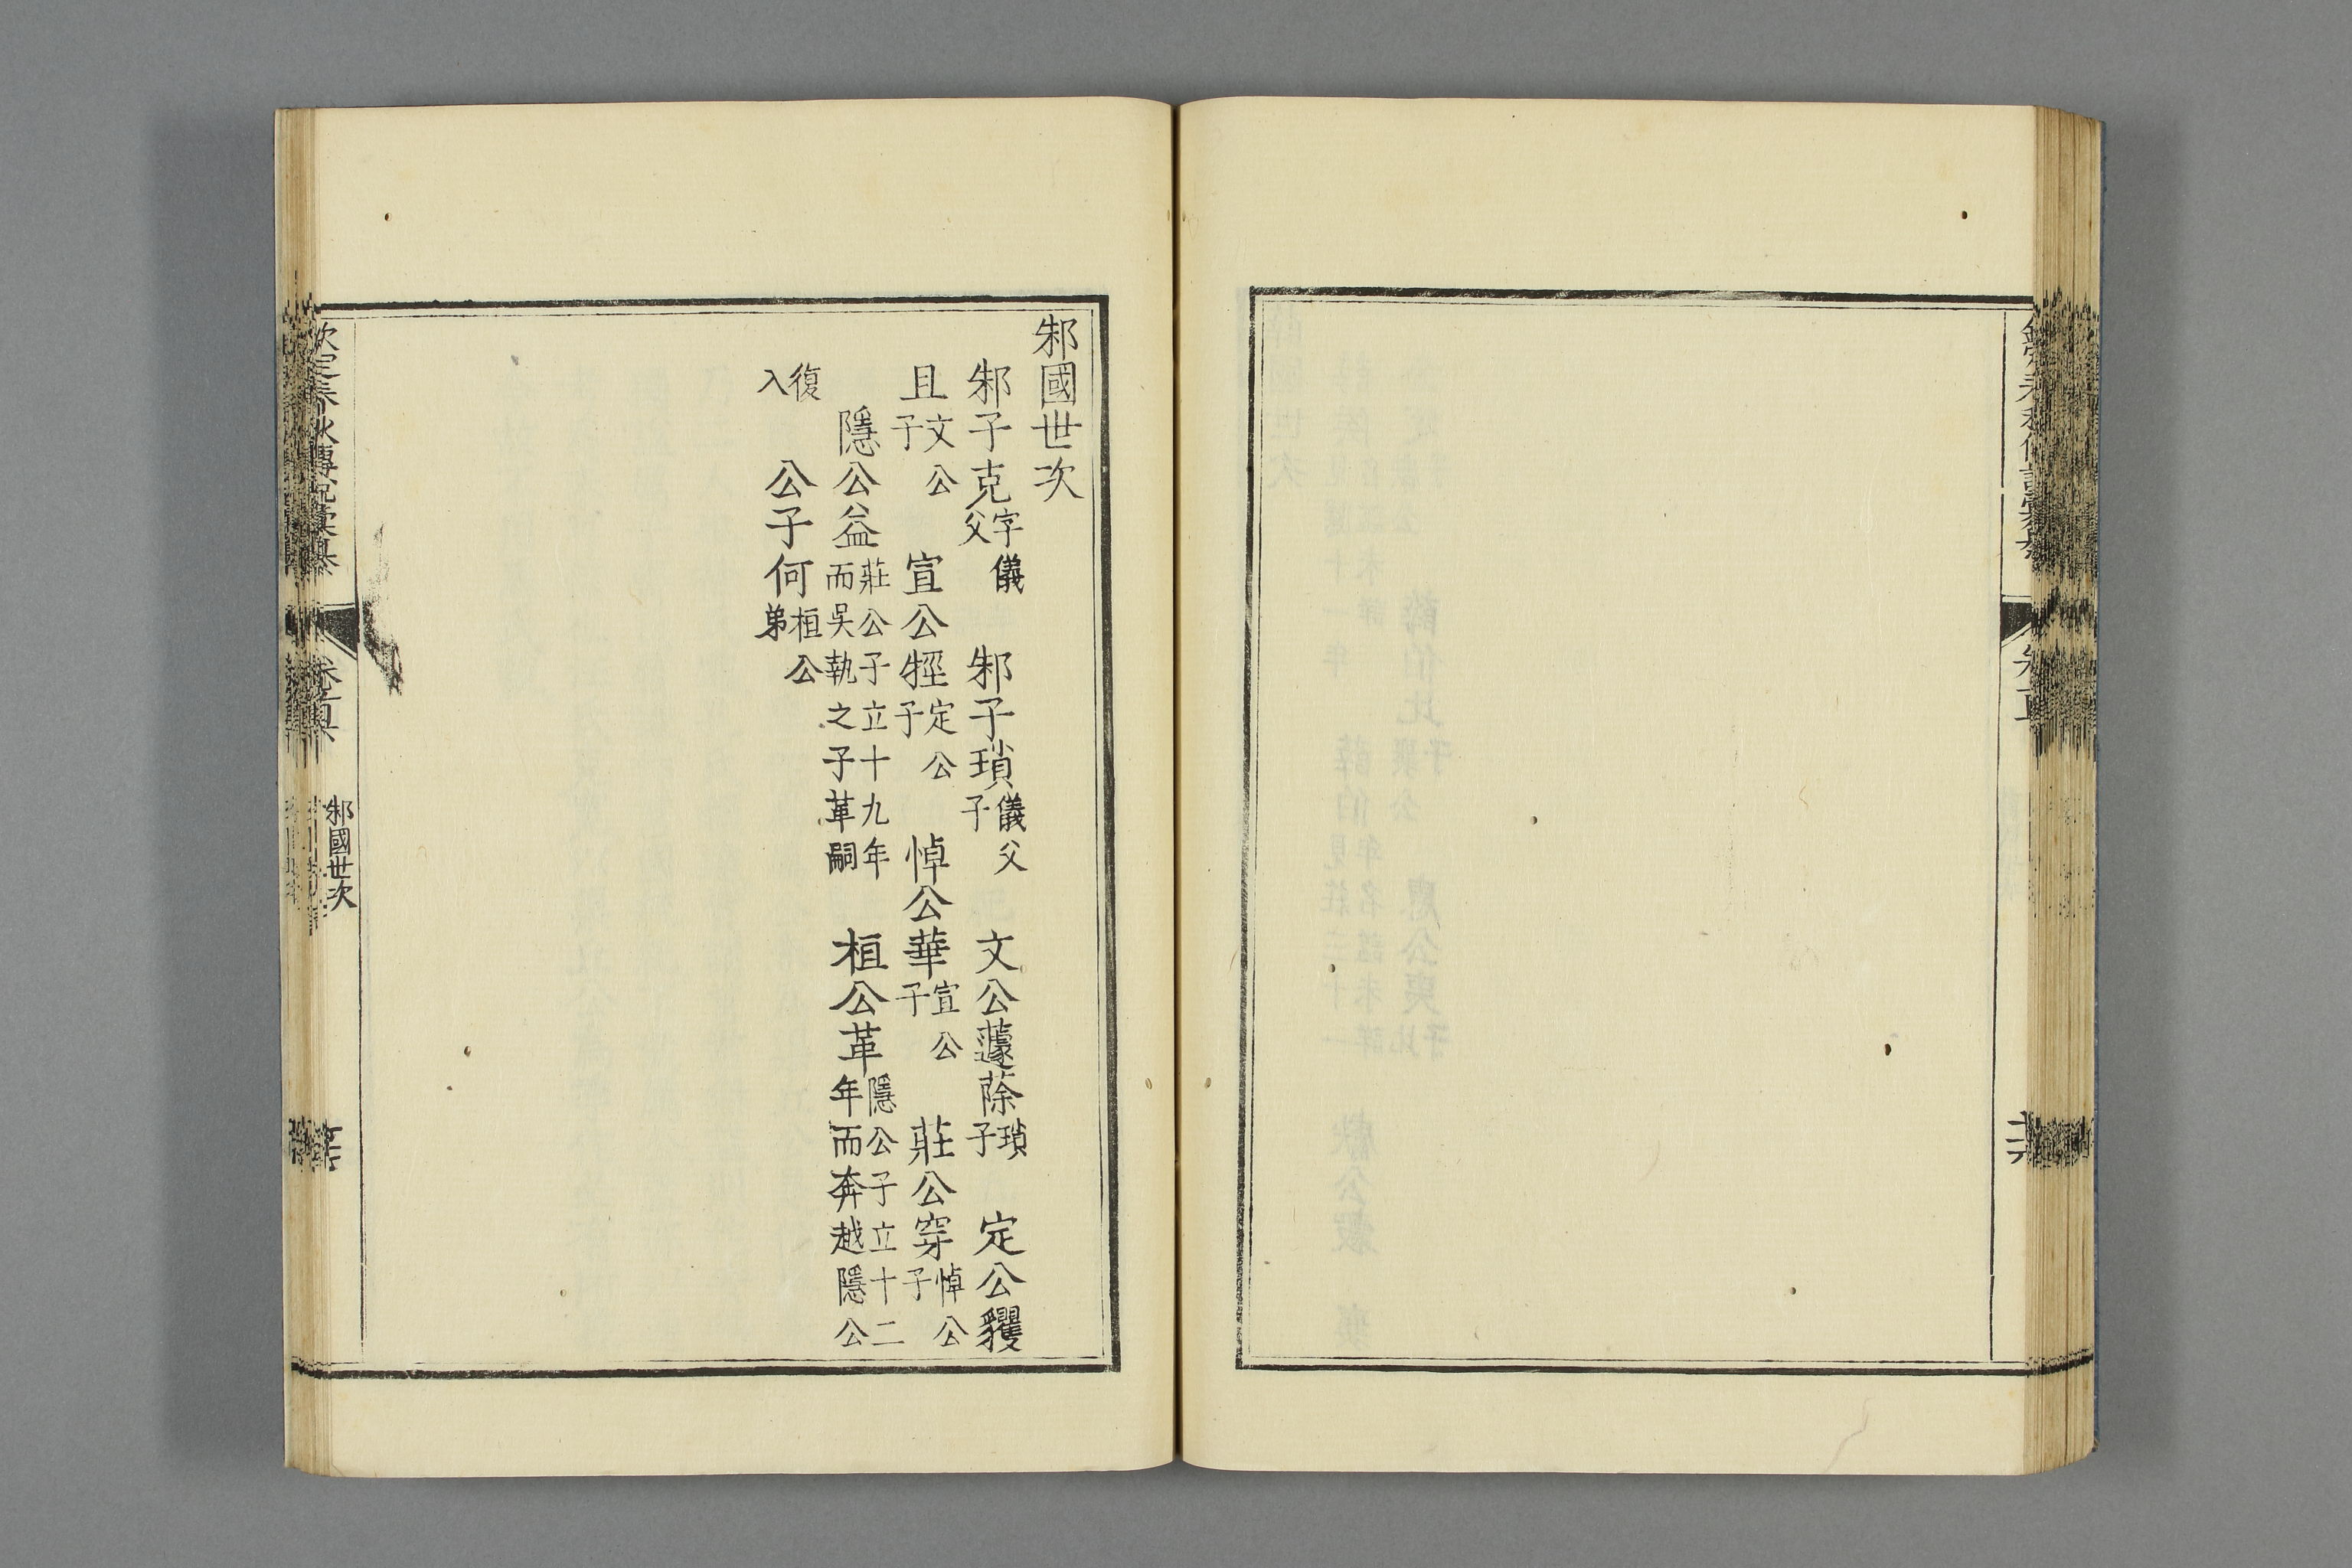 邾國世次
邾子克字儀父　邾子瑣儀父子　文公蘧蒢瑣子　定公貜
且文公子　宣公牼定公子　悼公華宣公子　莊公穿悼公子
隱公益莊公子立十九年而吳執之子革嗣　桓公革隱公子立十二年而奔越隱公
復入　公子何桓公弟
欽定春秋傳說彙纂
邾國世次